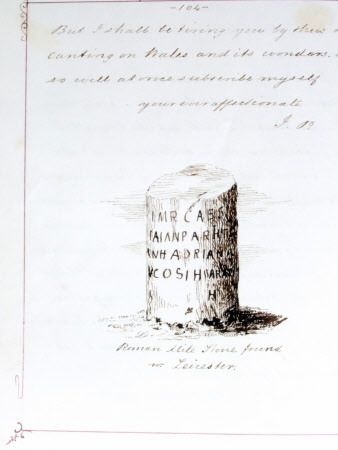 -104-
But I shall be tiring you by thus
canting on Wales and its wonders.
so will at once subscribe myself
your ever affectionate
J. B
IMP CAES
AIAN PARH
ANHADRIAN
COSIH
H
Roman Mile Stone found
nr Leicester.